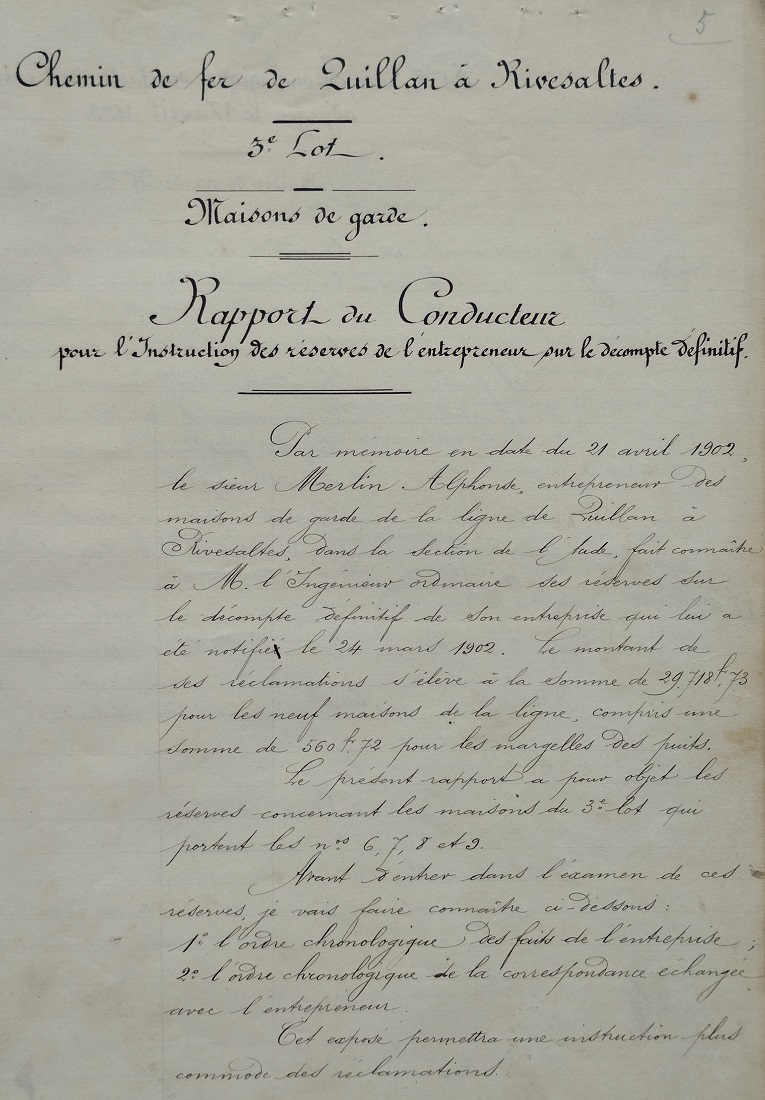 5
Chemin de fer de Quillan à Rivesaltes.
3e Lot.
Maisons de garde.
Rapport du Conducteur
pour l'Instruction des réserves de l'entrepreneur sur le décompte définitif.
Par mémoire en date du 21 avril 1902,
le sieur Merlin Alphonse, entrepreneur des
maisons de garde de la ligne de Quillan à
Rivesaltes, dans la Section de l'Aude, fait connaître
à M. l'Ingénieur ordinaire ses réserves sur
le décompte définitif de son entreprise qui lui a
été notifié le 24 mars 1902. Le montant de
ses réclamations s'élève à la somme de 29.718f,73
pour les neuf maisons de la ligne, compris une
somme de 560f.72 pour les margelles des puits.
Le présent rapport a pour objet les
réserves concernant les maisons du 3e lot qui
portent les nos 6, 7, 8 et 9.
Avant d'entrer dans l'éxamen de ces
réserves, je vais faire connaître ci-dessous :
1o l'ordre chronologique des faits de l'entreprise ;
2o l'ordre chronologique de la correspondance échangée
avec l'entrepreneur.
Cet exposé permettra une instruction plus
commode des réclamations.